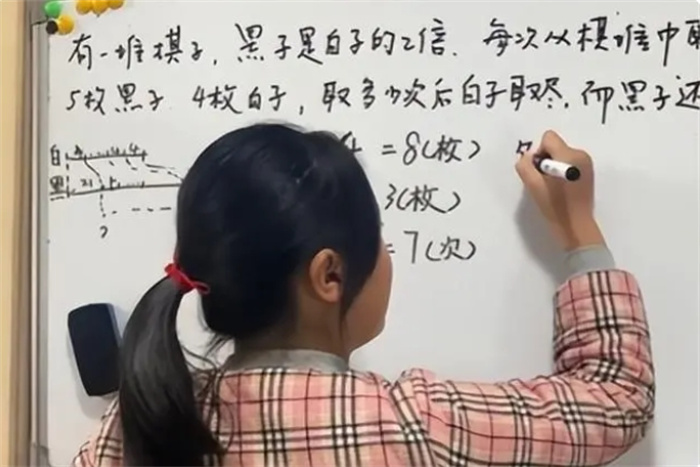 有一堆棋子，黑子是白子的2倍．每次从棋堆中取
5枚黑子 4枚白子，取多少次后白子取尽，而黑子还
白 4 4
黑
?
4 =8(枚)
3(枚)
=7(次)